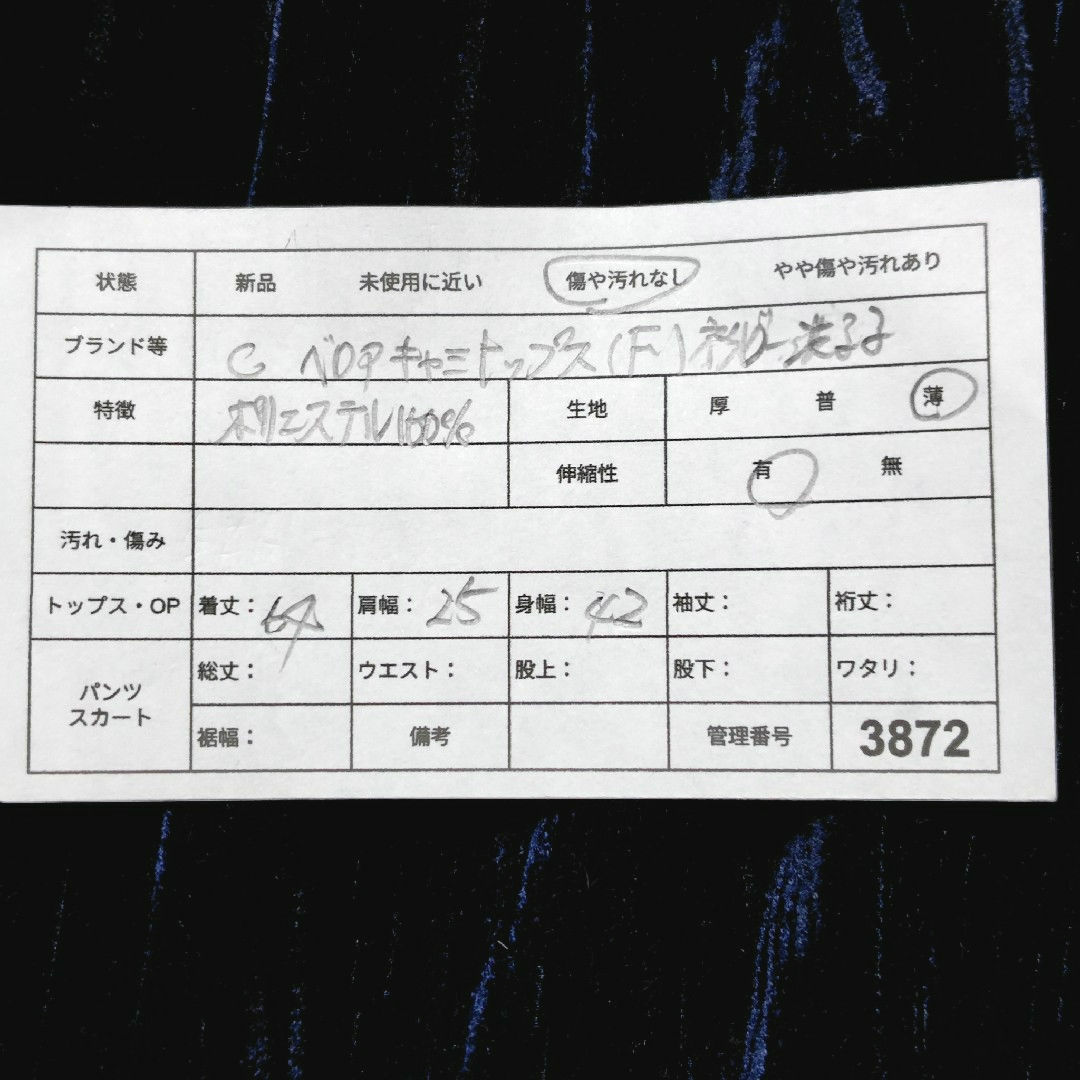 状態 新品 未使用に近い 傷や汚れなし やや傷や汚れあり
ブランド等 C ベロアキャミトップス(F)
特徴 ポリエステル100% 生地 厚 普 薄
伸縮性 有 無
汚れ・傷み
トップス・OP 着丈:64 肩幅:25 身幅:42 袖丈: 裄丈:
パンツ 総丈: ウエスト: 股上: 股下: ワタリ:
スカート 裾幅: 備考 管理番号 3872